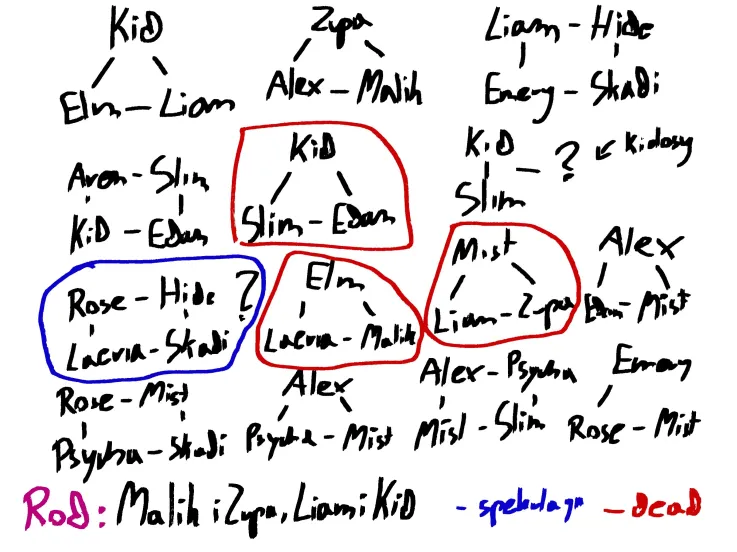 KiD Zupa Liam - Hide
Elm - Liam Alex - Malih Emery - Skadi
KiD KiD ? ↙ Kidosy
Aron - Slim Slim
KiD - Edan Slim - Edan
Rose - Hide ? Elm Mist Alex
Lacria - Skadi Lacria - Malih Liam - Zupa Edan - Mist
Rose - Mist Alex Alex - Psycha Emery
Psycha - Skadi Psycha - Mist Mist - Slim Rose - Mist
Rod: Malih i Zupa, Liam i KiD - spekulacja - dead